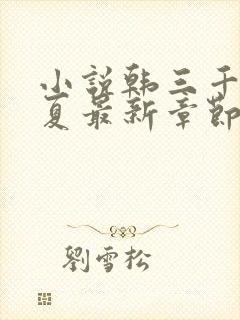 小說韩三千
夏最新章節
劉雪松